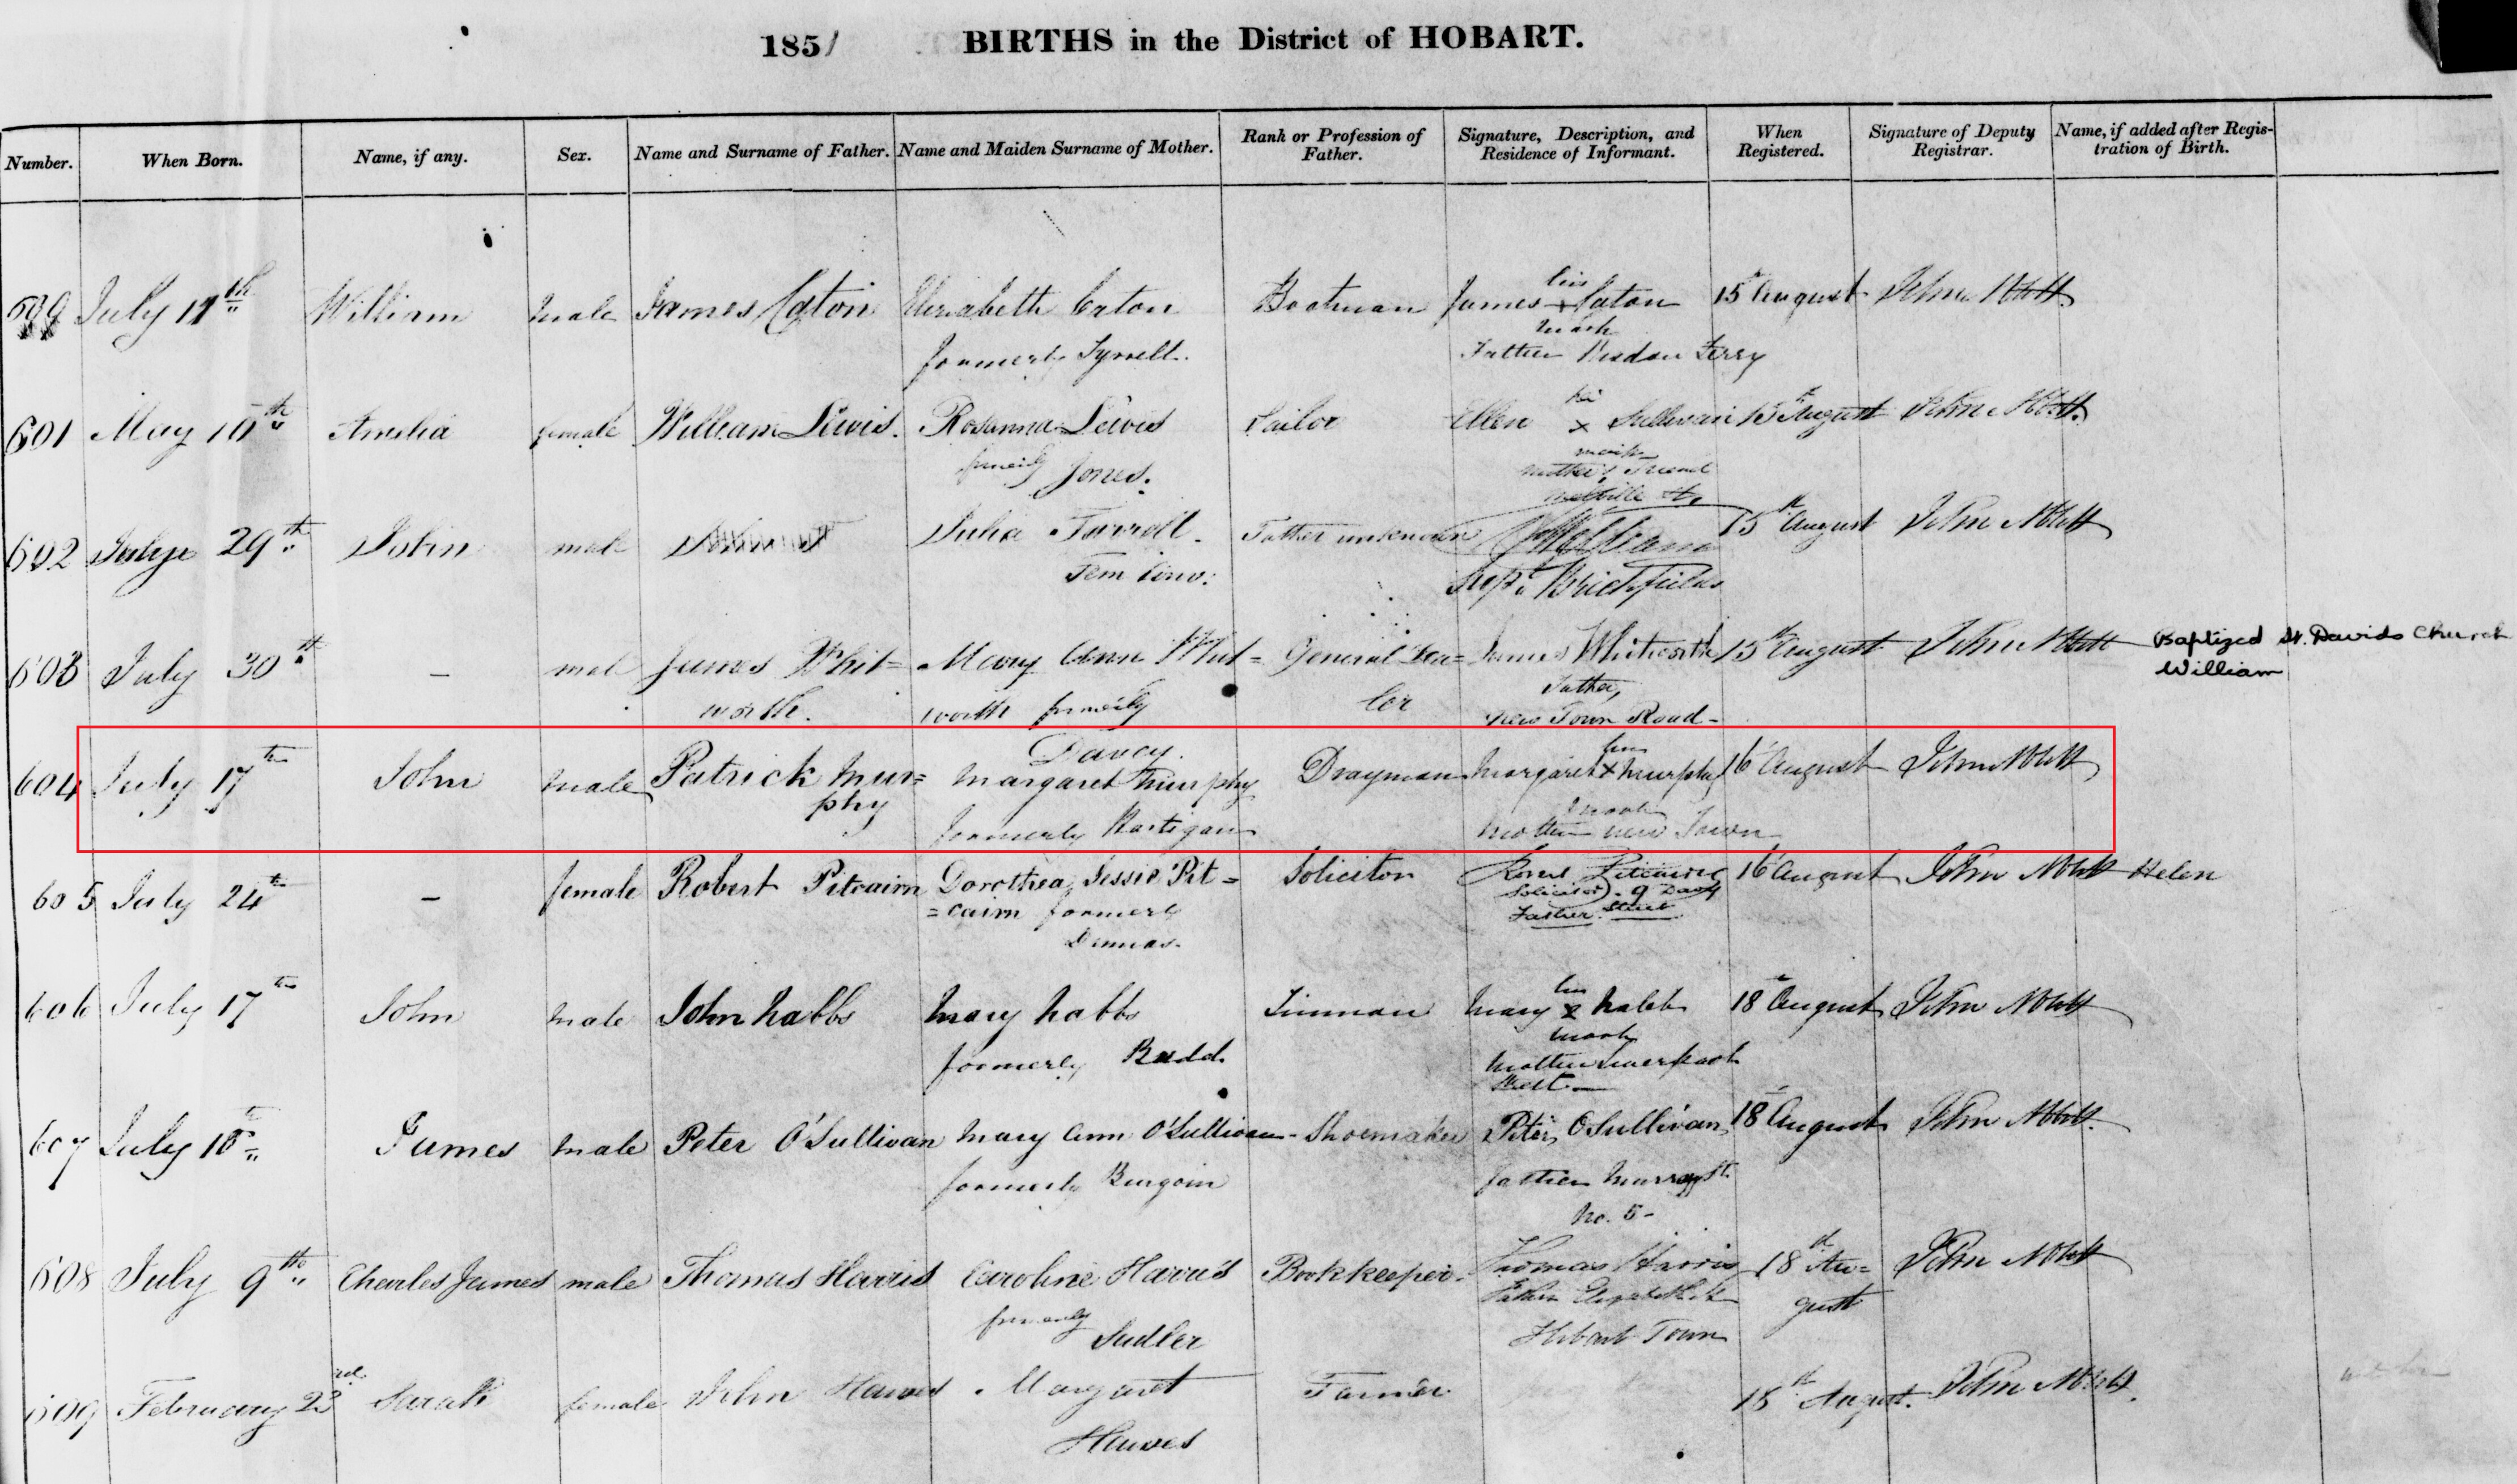 1851 BIRTHS in the District of HOBART.
Number. When Born. Name, if any. Sex. Name and Surname of Father. Name and Maiden Surname of Mother. Rank or Profession of Father. Signature, Description, and Residence of Informant. When Registered. Signature of Deputy Registrar. Name, if added after Registration of Birth.
July 17th William male James Caton Elizabeth Caton Boatman James x Caton 15 August John Abbott
mark
formerly Tyrrell. Father Risdon Ferry
601 May 10th Amelia female William Lewis. Rosanna Lewis Sailor Ellen x Sullivan 15th August John Abbott
mark
formerly Jones. mother's Friend
Melville St.
602 29th John male Julia Farrell. Father unknown 15th August John Abbott
Supt. Brickfields
603 July 30th – male James Whit= Mary Ann Whit= General Dea= James Whitworth 15th August John Abbott Baptized St. Davids Church
worth. worth formerly ler Father, William
New Town Road –
Davey.
604 July 17th John male Patrick Mur= Margaret Murphy Drayman Margaret x Murphy 16 August John Abbott
phy mark
formerly Hartigan mother New Town
605 July 24th – female Robert Pitcairn Dorothea Jessie Pit= Solicitor Robert Pitcairn 16 August John Abbott Helen
=cairn formerly Solicitor. 9 Davey
Father. Street
Dumas.
606 July 17th John male John Nabbs Mary Nabbs Tinman Mary x Nabbs 18 August John Abbott
mark
formerly Budd. mother Liverpool
Street –
607 July 18th James male Peter O'Sullivan Mary Ann O'Sullivan – Shoemaker Peter O'Sullivan 18 August John Abbott.
formerly Burgoin father Murray St.
No. 5 –
608 July 9th Charles James male Thomas Harris Caroline Harris Bookkeeper. Thomas Harris 18th Au= John Abbott
formerly Father Elizabeth St gust
Sadler Hobart Town
609 February 23rd Sarah female John Hawes Margaret Farmer 18th August. John Abbott.
Hawes